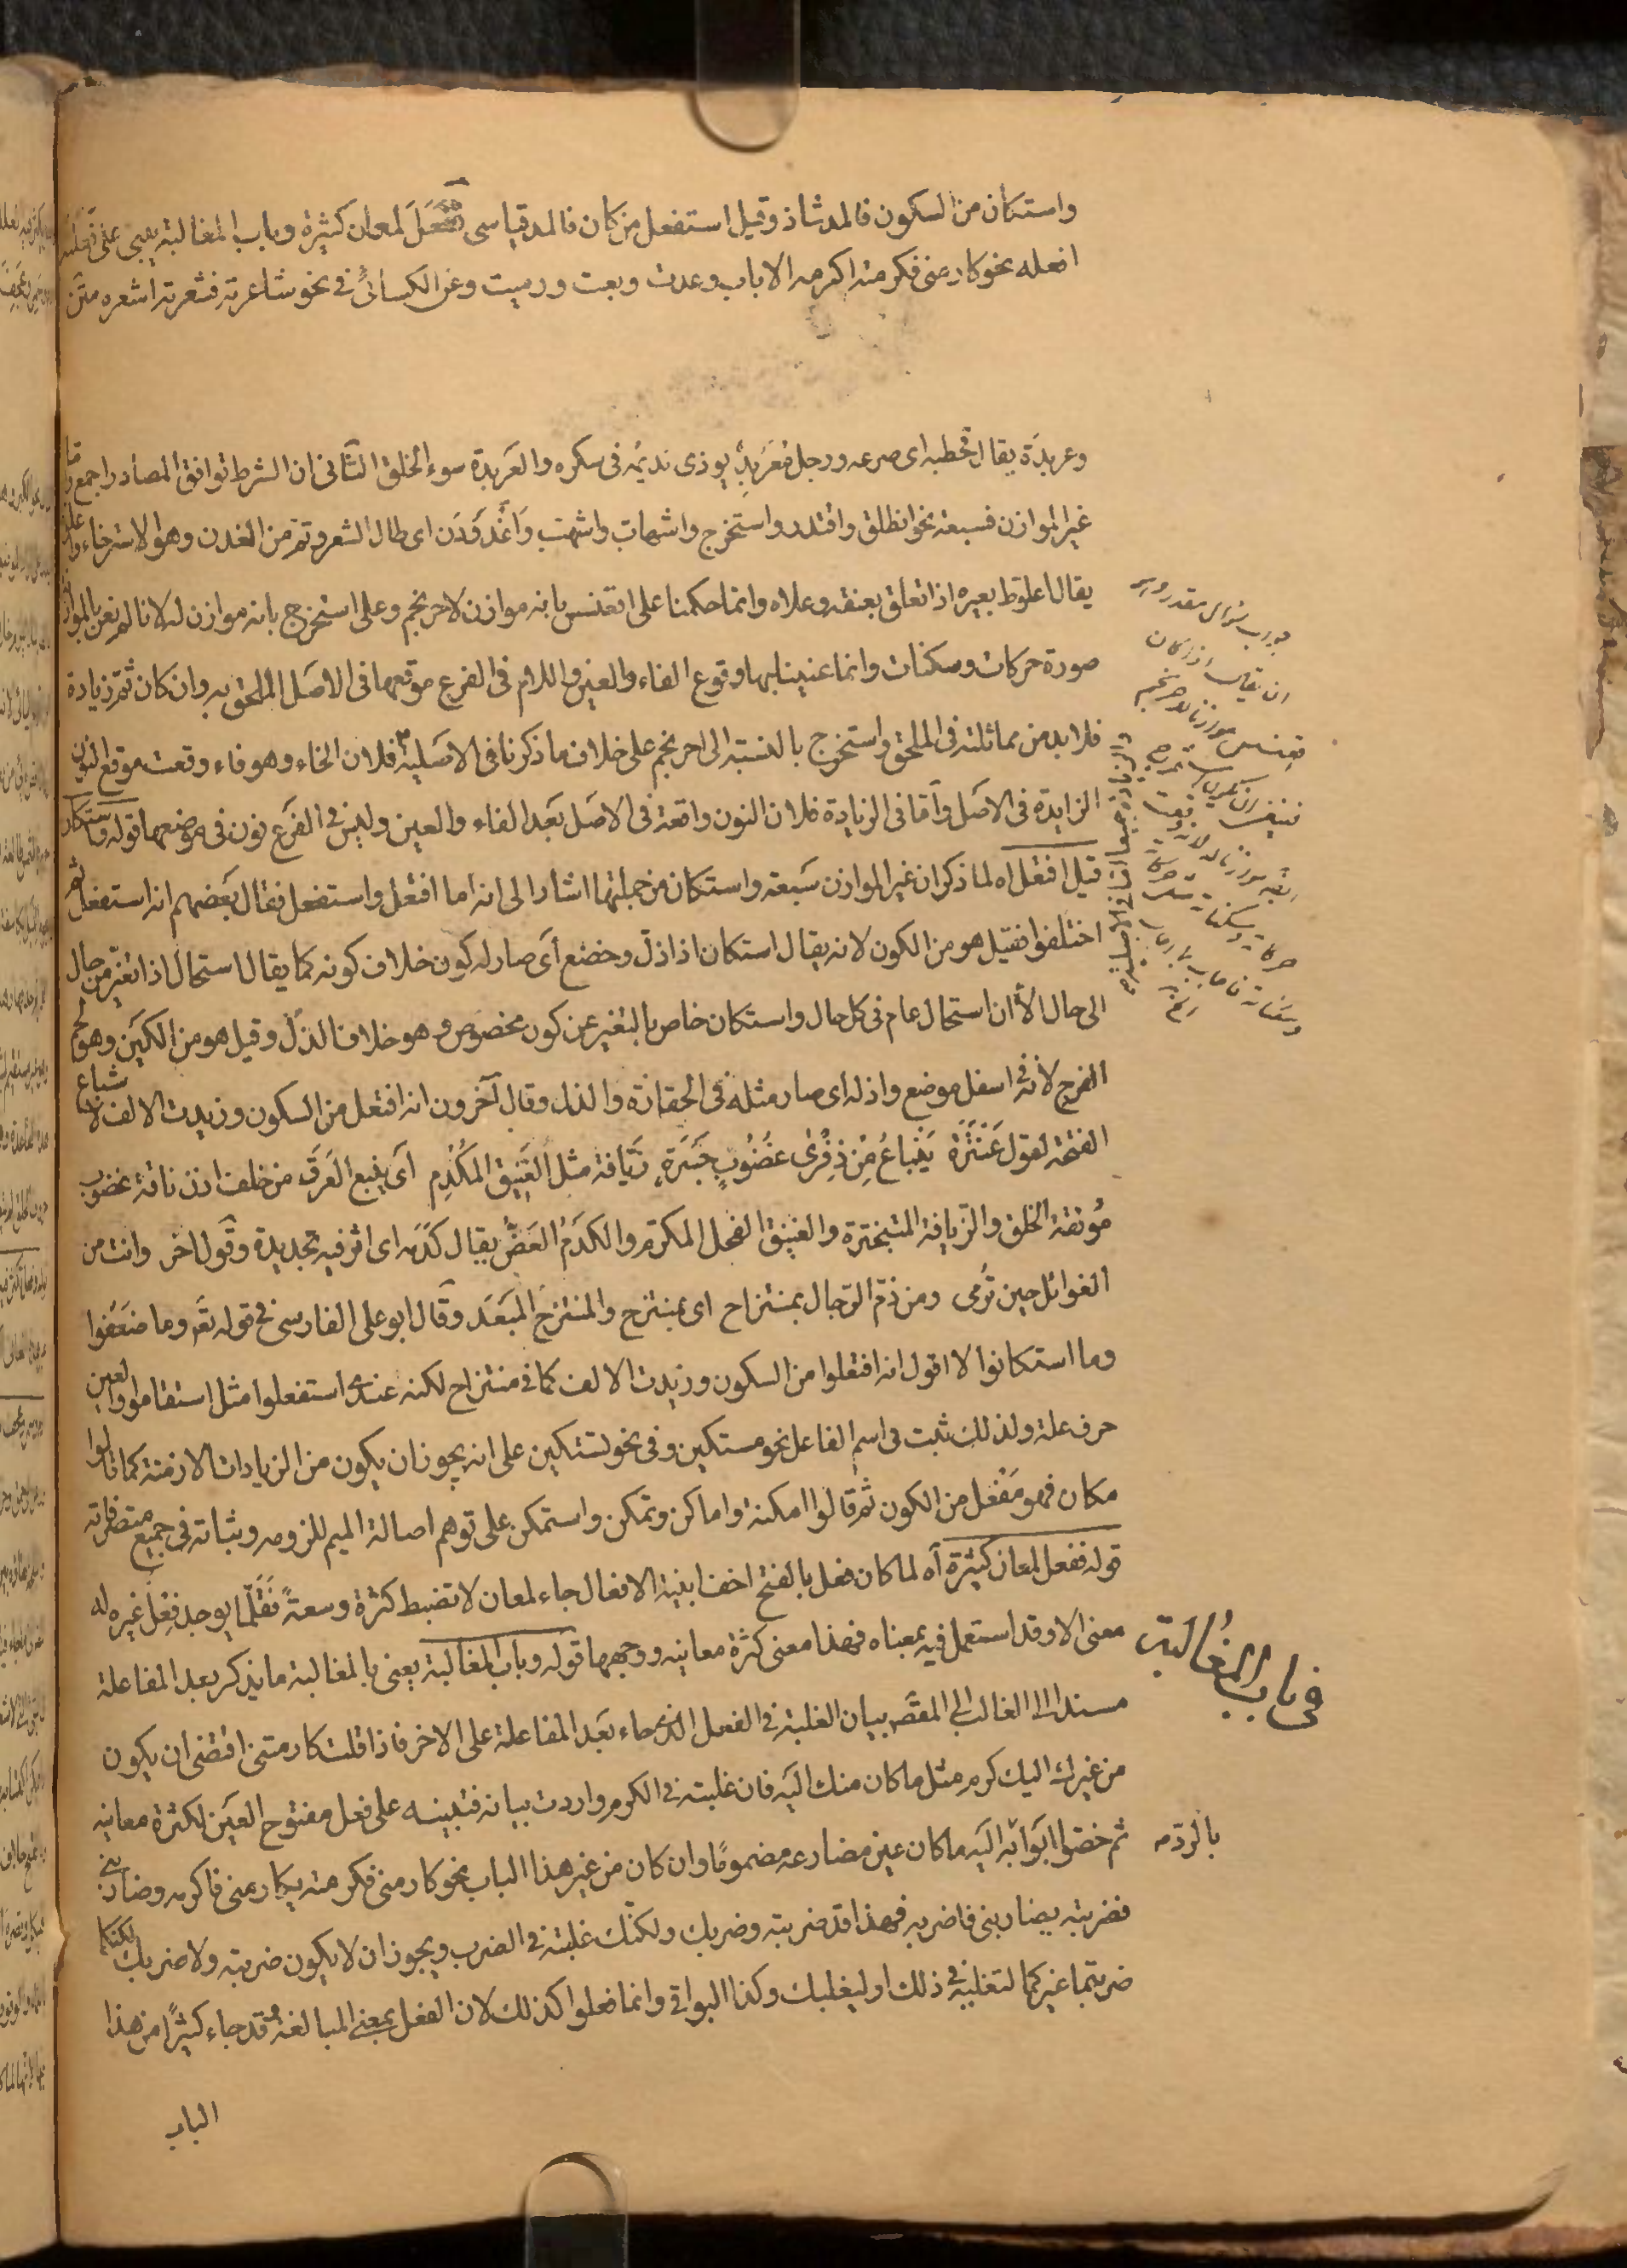 واستكان من السكون فالمد شاذ وقيل استفعل من كان فالمد قياسى ففعل لمعان كثيرة وباب المغالبة يبنى على فعلته
افعله نحو كارمنى فكرمته اكرمه الا باب وعدت وبعت ورميت وعن الكسائى فى نحو شاعرته فشعرته اشعره
وعربدة يقال قحطبه اى صرعه ورجل مُعَربِد يوذى نديمه فى سكره والعربدة سوء الخلق الثانى ان الشرط توافق المصادر اجمع
غير الموازن فسبعة نحو انطلق واقتدر واستخرج واشهاب واشهب واغدودن اى طال الشعر وتم من الغدن وهو الاسترخاء
يقال اعلوط بعيره اذا تعلق بعنقه وعلاه وانما حكمنا على اقعنسس بانه موازن لاحرنجم وعلى استخرج بانه موازن له لانا لم نعن بالموازنة
صورة حركات وسكنات وانما عنينا بها وقوع الفاء والعين واللام فى الفرع موقعها فى الاصل الملحق به وان كان ثم زيادة
فلا بد من مماثلته فى الملحق واستخرج بالنسبة الى احرنجم على خلاف ما ذكرنا فى الاصلية فلان الخاء وهو فاء وقعت موقع النون
الزايدة فى الاصل وأما فى الزيادة فلان النون واقعة فى الاصل بعد الفاء والعين وليس فى الفرع نون فى موضعها قوله واستكان
قيل افتعل اه لما ذكر ان غير الموازن سبعة واستكان من جملتها اشار الى انه اما افتعل واستفعل فقال بعضهم انه استفعل ثم
اختلفوا فقيل هو من الكون لانه يقال استكان اذا ذل وخضع أى صار له كون خلاف كونه كما يقال استحال اذا تغير من حال
الى حال الا ان استحال عام فى كل حال واستكان خاص بالتغير عن كون مخصوص وهو خلاف الذل وقيل هو من الكين وهو لحم
الفرج لانه فى اسفل موضع واذله اى صار مثله فى الحقارة والذل وقال آخرون انه افتعل من السكون وزيدت الالف لاشباع
الفتحة لقول عنترة يَنْباعُ مِن ذِفْرى غَضُوبٍ جَسَرَةٍ زَيّافة مثل الفنيق المكدم أى ينبع العرق من خلف اذن ناقة غضوب
مُوثقة الخلق والزيافة المتبخترة والفنيق الفحل المكرّم والكدم العضّ يقال كدمه اى اثر فيه بحديدة وقول اخر وانت من
الغوائل حين تُرمى ومن ذمّ الرّجال بمنتزاح اى بمنتزح والمنتزح المبعد وقال ابو على الفارسى فى قوله تعه وما ضعفوا
وما استكانوا لا اقول انه افتعلوا من السكون وزيدت الالف كما فى منتزاح لكنه عندى استفعلوا مثل استقاموا والعين
حرف علة ولذلك ثبت فى اسم الفاعل نحو مستكين وفى نحو تستكين على انه يجوز ان يكون من الزيادات اللازمة كما قالوا
مكان فهو مَفْعل من الكون ثم قالوا امكنة واماكن وتمكن واستمكن على توهم اصالة الميم للزومه وثباته فى جميع متصرفاته
قوله ففعل لمعان كثيرة آه لما كان فعل بالفتح اخف ابنية الافعال جاء لمعان لا تضبط كثرة وسعةً فَقَلّما يوجد فعل غيره له
معنى الا وقد استعمل فيه بمعناه فهذا معنى كثرة معانيه ووجهها قوله وباب المغالبة يعنى بالمغالبة ما يذكر بعد المفاعلة
مسندا الى الغالب اى المقصد بيان الغلبة فى الفعل الذى جاء بعد المفاعلة على الاخر فاذا قلت كارمنى اقتضى ان يكون
من غيرك اليك كرم مثل ما كان منك اليه فان غلبته فى الكرم واردت بيانه فتبينه على فعل مفتوح العين لكثرة معانيه
ثم خصوا ابوابه اليه ما كان عين مضارعه مضموما وان كان من غير هذا الباب نحو كارمنى فكرمته يكارمنى فاكرمه وضاربنى
فضربته يضاربنى فاضربه فهذا قد ضربته وضربك ولكنّك غلبته فى الضرب ويجوز ان لا يكون ضربته ولا ضربك لكنكما
ضربتما غيركما لتغلبه فى ذلك او ليغلبك وكذا البواقى وانما فعلوا كذلك لان الفعل بمعنى المبالغة قد جاء كثيرًا من هذا
الباب
جواب سؤال مقدر
ان يقال
فى باب المغالبة